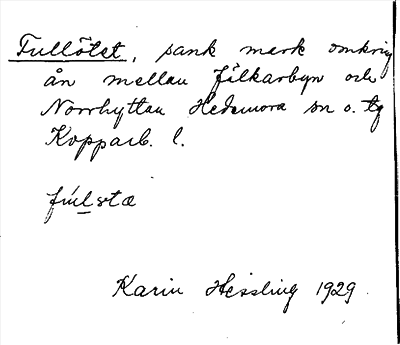 Fullötet, sank mark omkring
ån mellan Jälkarbyn och
Norrhyttan Hedemora sn o. tg
Kopparb. l.
fúløtæ
Karin Hessling 1929.